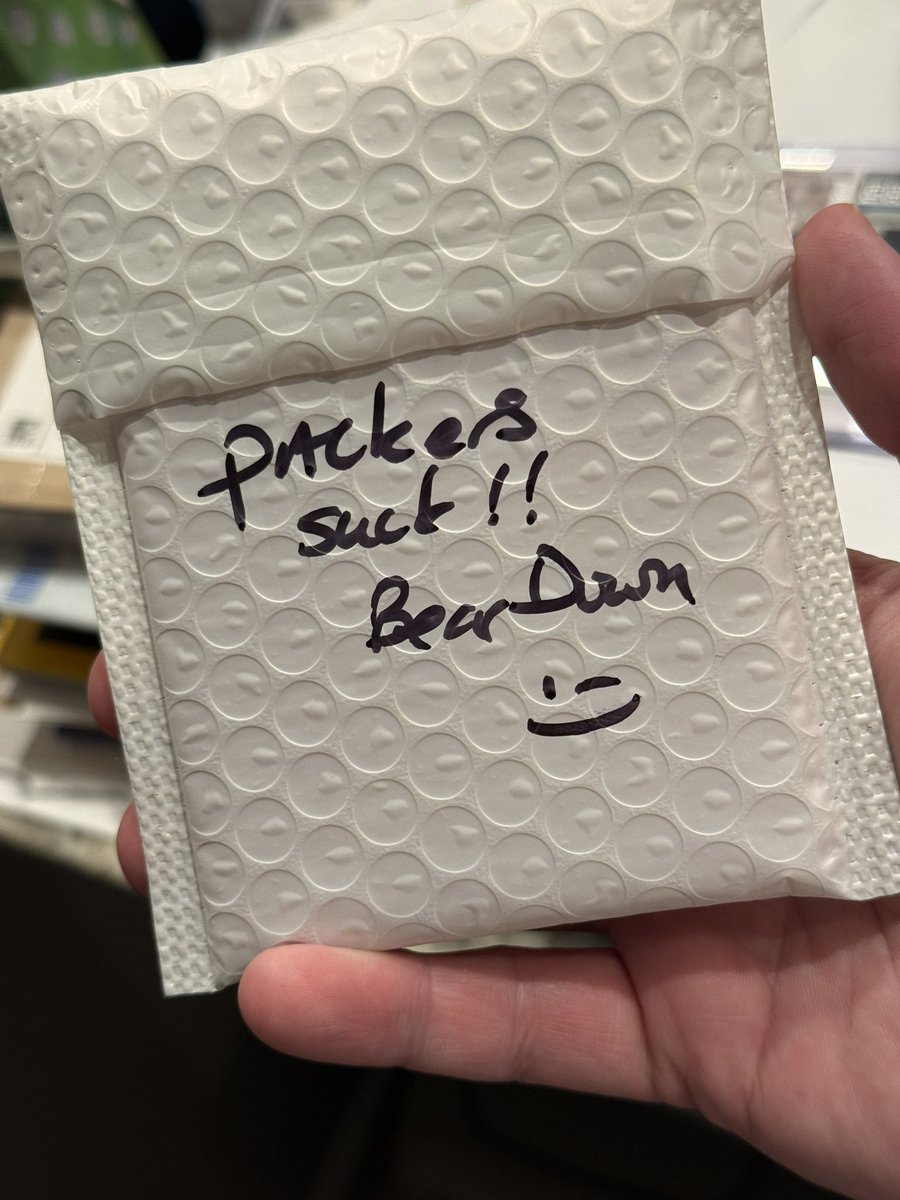 PACkers
suck!!
Bear Down